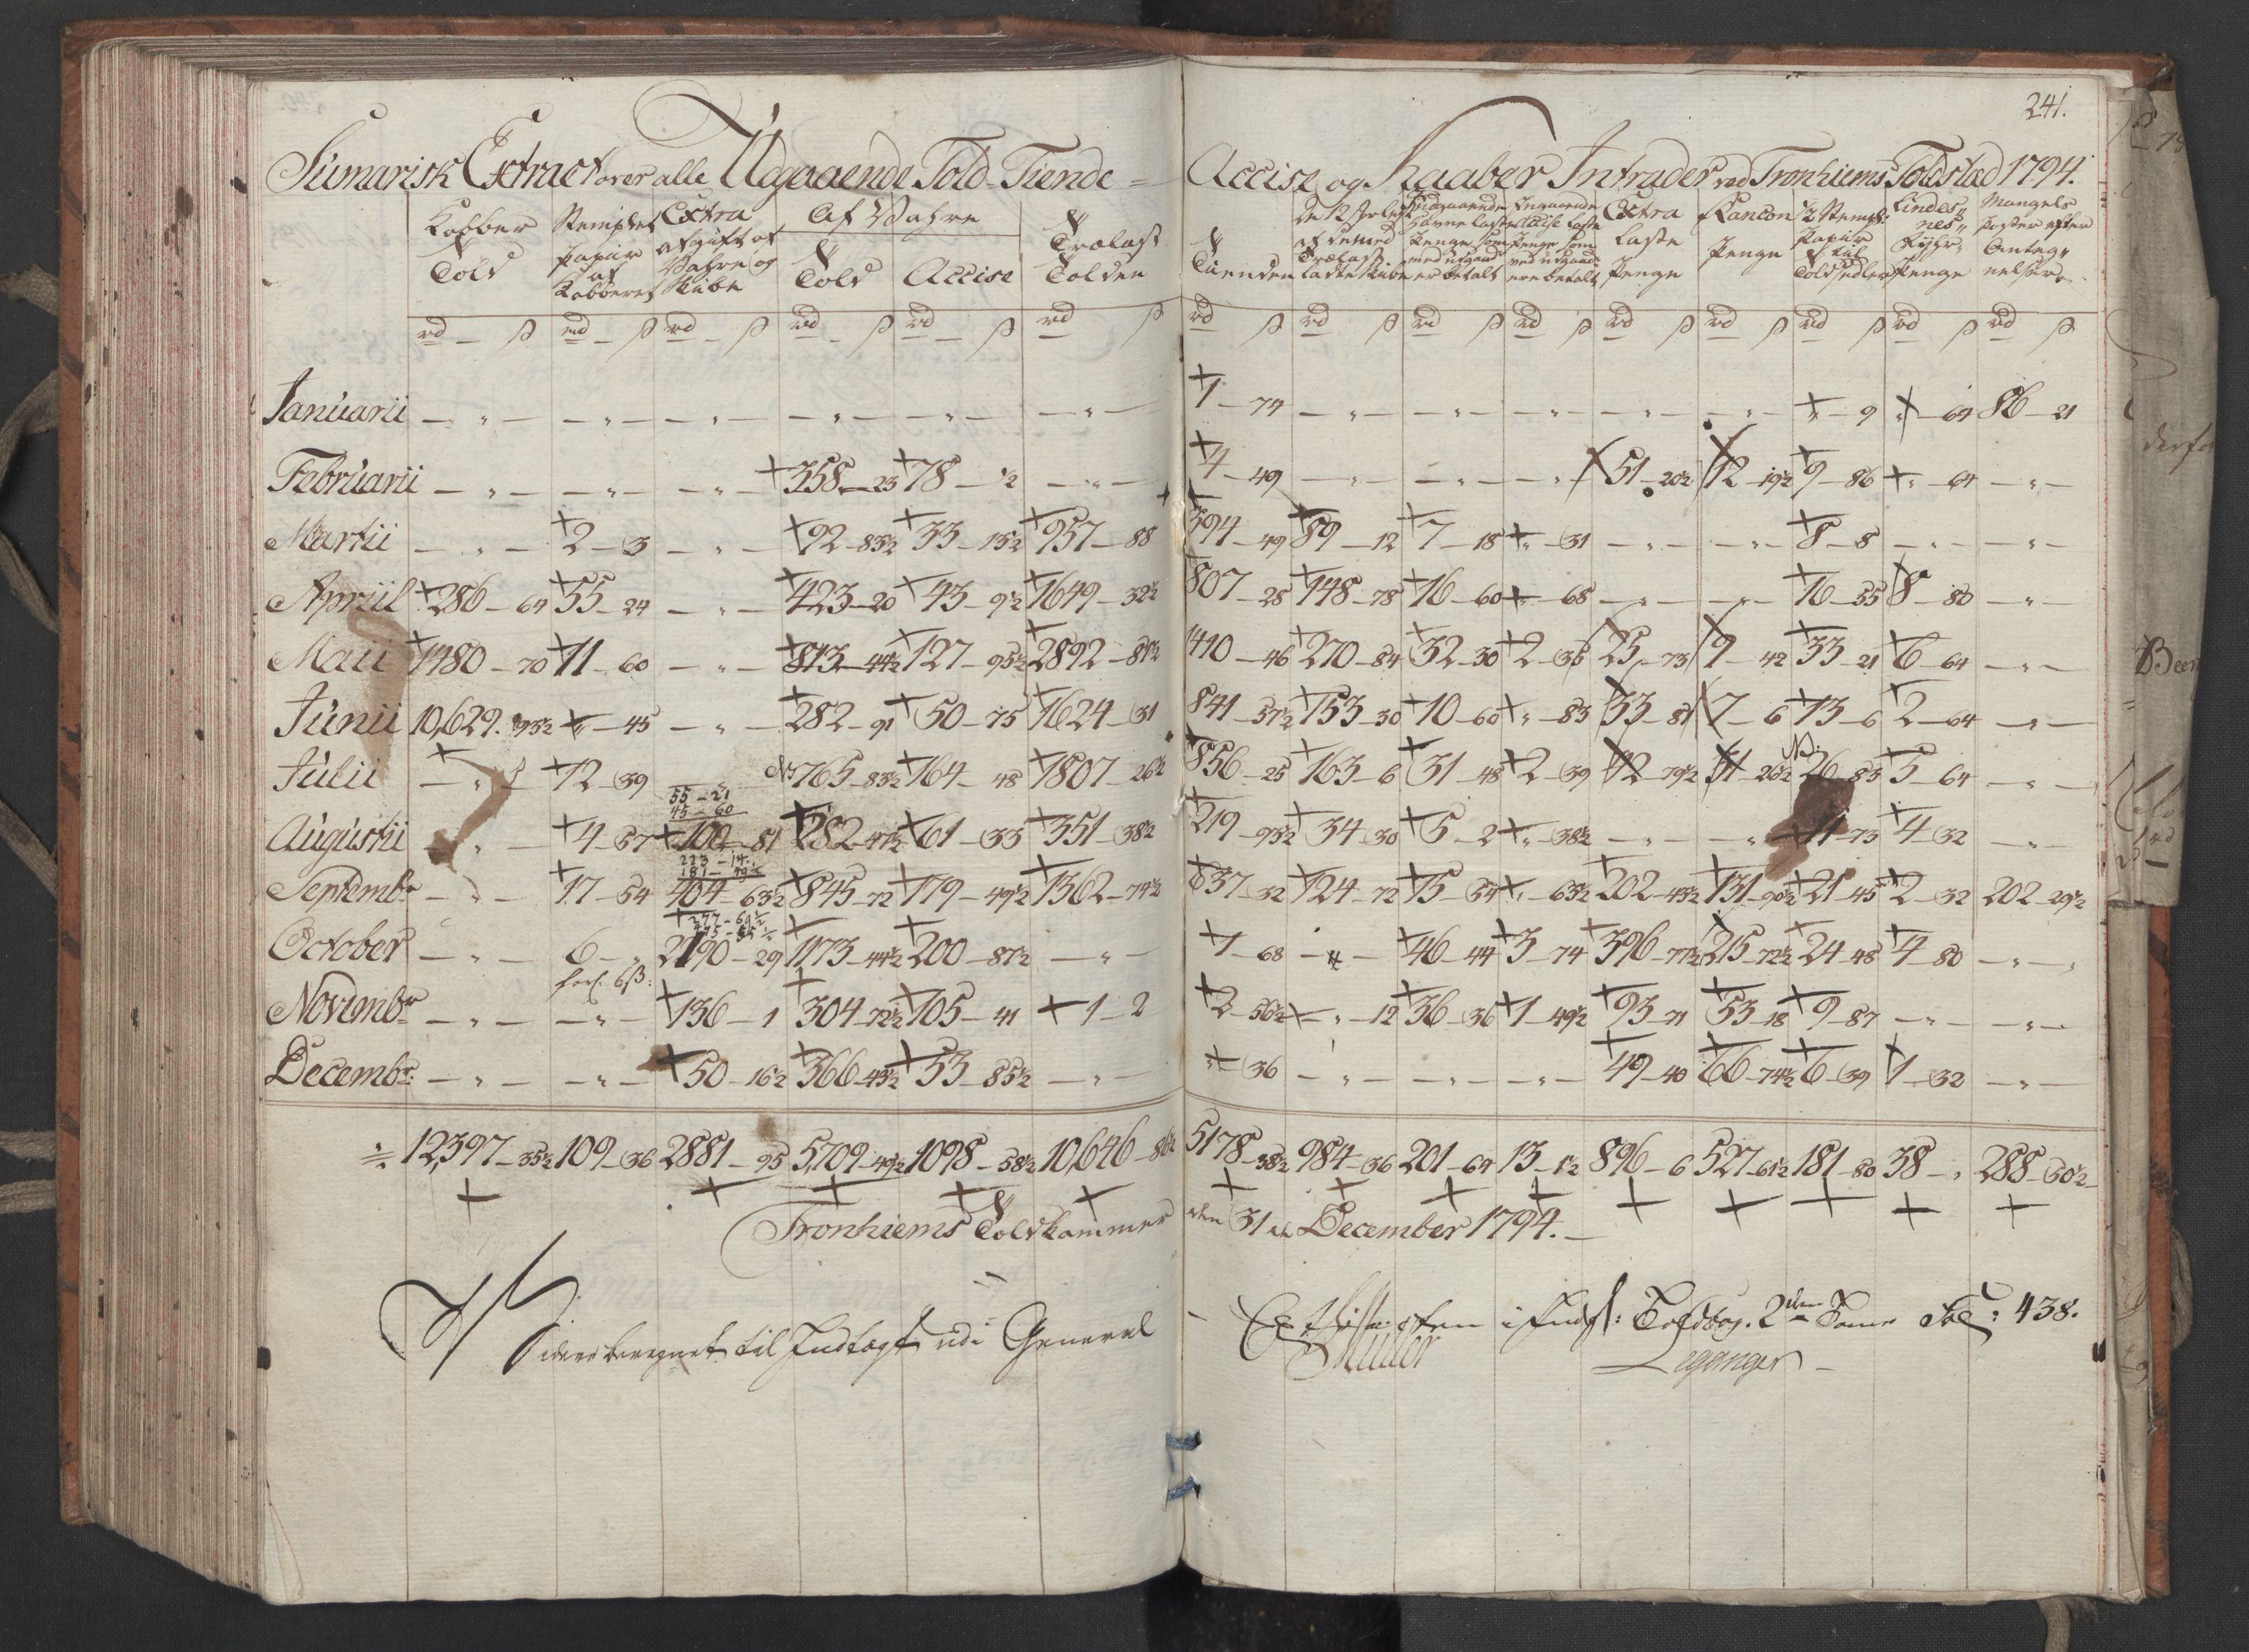 241.
Sumarisk Extract over alle Udgaaende Told-Tiende = Accise og Kaaber Intrader ved Tronhiems Toldsted 1794.
Kobber Told | Stemplet papir af Kobberet | Extra afgift af Wahre og Skibe | Af Wahre Told | Accise | Trælast Tolden | Tienden | Extra Laste Penge | Rancon Penge | 1/2 Stempl: Papir til Toldsedler | Lindes„ nes„ Fyhr„ Penge | Mangels Poster efter Anteg„ nelser
rd ß | rd ß | rd ß | rd ß | rd ß | rd ß | rd ß | rd ß | rd ß | rd ß | rd ß | rd ß | rd ß | rd ß | rd ß
Januarii — „ — | — „ — | — „ — | — „ — | — „ — | — „ — | 1 — 74 | — „ — | — „ — | — „ — | — „ — | — „ — | „ — 9 | „ — 64 | 86 — 21
Februarii — „ — | — „ — | — „ — | 358 — 23 | 78 — 1/2 | — „ — | 4 — 49 | — „ — | — „ — | — „ — | 51 — 20½ | 12 — 19½ | 9 — 86 | „ — 64 | — „ —
Martii — „ — | 2 — 3 | — „ — | 92 — 83½ | 33 — 15½ | 957 — 88 | 394 — 49 | 89 — 12 | 7 — 18 | „ — 31 | — „ — | — „ — | 8 — 8 | — „ — | — „ —
Apriil 286 — 64 | 55 — 24 | — „ — | 423 — 20 | 43 — 9½ | 1649 — 32½ | 807 — 28 | 148 — 78 | 16 — 60 | „ — 68 | — „ — | — „ — | 16 — 55 | 8 — 80 | — „ —
Maii 1480 — 70 | 11 — 60 | — „ — | 813 — 44½ | 127 — 95½ | 2892 — 81½ | 1410 — 46 | 270 — 84 | 32 — 30 | 2 — 35 | 25 — 73 | 9 — 42 | 33 — 21 | 6 — 64 | — „ —
Junii 10,629. 93½ | „ — 45 | — „ — | 282 — 91 | 50 — 75 | 1624 — 31 | 841 — 57½ | 153 — 30 | 10 — 60 | „ — 83 | 33 — 81 | 7 — 6 | 13 — 6 | 2 — 64 | — „ —
Julii — „ — | 12 — 39 | — „ — | 765 — 83½ | 164 — 48 | 1807 — 26½ | 856 — 25 | 163 — 6 | 31 — 48 | 2 — 39 | 42 — 79½ | 31 — 26½ | 26 — 83 | 5 — 64 | — „ —
55 — 21
45 — 60
Augustii — „ — | 4 — 57 | 100 — 81 | 282 — 47½ | 61 — 33 | 351 — 38½ | 219 — 93½ | 34 — 30 | 5 — 2 | „ — 38½ | — „ — | — „ — | 11 — 73 | 4 — 32 | — „ —
223 — 14.
181 — 49½
Septembr — „ — | 17 — 54 | 404 — 63½ | 845 — 72 | 179 — 49½ | 1362 — 74½ | 637 — 32 | 124 — 72 | 15 — 54 | „ — 63½ | 202 — 43½ | 131 — 90½ | 21 — 45 | 2 — 32 | 202 — 29½
October — „ — | 6 — „ | 2190 — 29 | 1173 — 44½ | 200 — 87½ | — „ — | 1 — 68 | — „ — | 46 — 44 | 3 — 74 | 396 — 77½ | 215 — 72½ | 24 — 48 | 4 — 80 | — „ —
Novembr — „ — | — „ — | 136 — 1 | 304 — 72½ | 105 — 41 | 1 — 2 | 2 — 56½ | „ — 12 | 36 — 36 | 1 — 49½ | 93 — 71 | 53 — 18 | 9 — 87 | — „ — | — „ —
Decembr: — „ — | — „ — | 50 — 16½ | 366 — 43½ | 53 — 85½ | — „ — | „ — 36 | — „ — | — „ — | — „ — | 49 — 40 | 66 — 74½ | 6 — 39 | 1 — 32 | — „ —
12,397 — 35½ | 109 — 36 | 2881 — 95 | 5,709 — 49½ | 1098 — 58½ | 10,646 — 86½ | 5178 — 38½ | 984 — 36 | 201 — 64 | 13 — 1½ | 896 — 6 | 527 — 61½ | 181 — 80 | 38 — „ | 288 — 50½
Tronhiems Toldkammer den 31 te December 1794.
beregnet til Indtægt udi General
Toldbog. 2den Tome Fol: 438.
Müller
Leganger